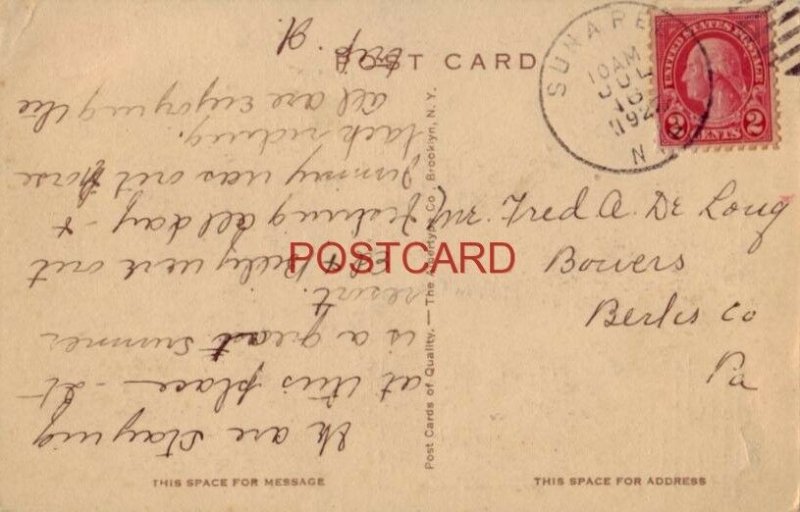 POST CARD
SUNAPEE
10 AM
JUL
192
N
UNITED STATES POSTAGE
2 CENTS 2
We are staying
at this place - It
is a great summer
resort.
Ed + Billy were out
fishing all day - +
Jimmy was out horse
back riding.
All are enjoying the
trip. H.
POSTCARD
Mr. Fred A. De Long
Bowers
Berks Co
Pa
Post Cards of Quality. — The Albertype Co., Brooklyn, N. Y.
THIS SPACE FOR MESSAGE
THIS SPACE FOR ADDRESS